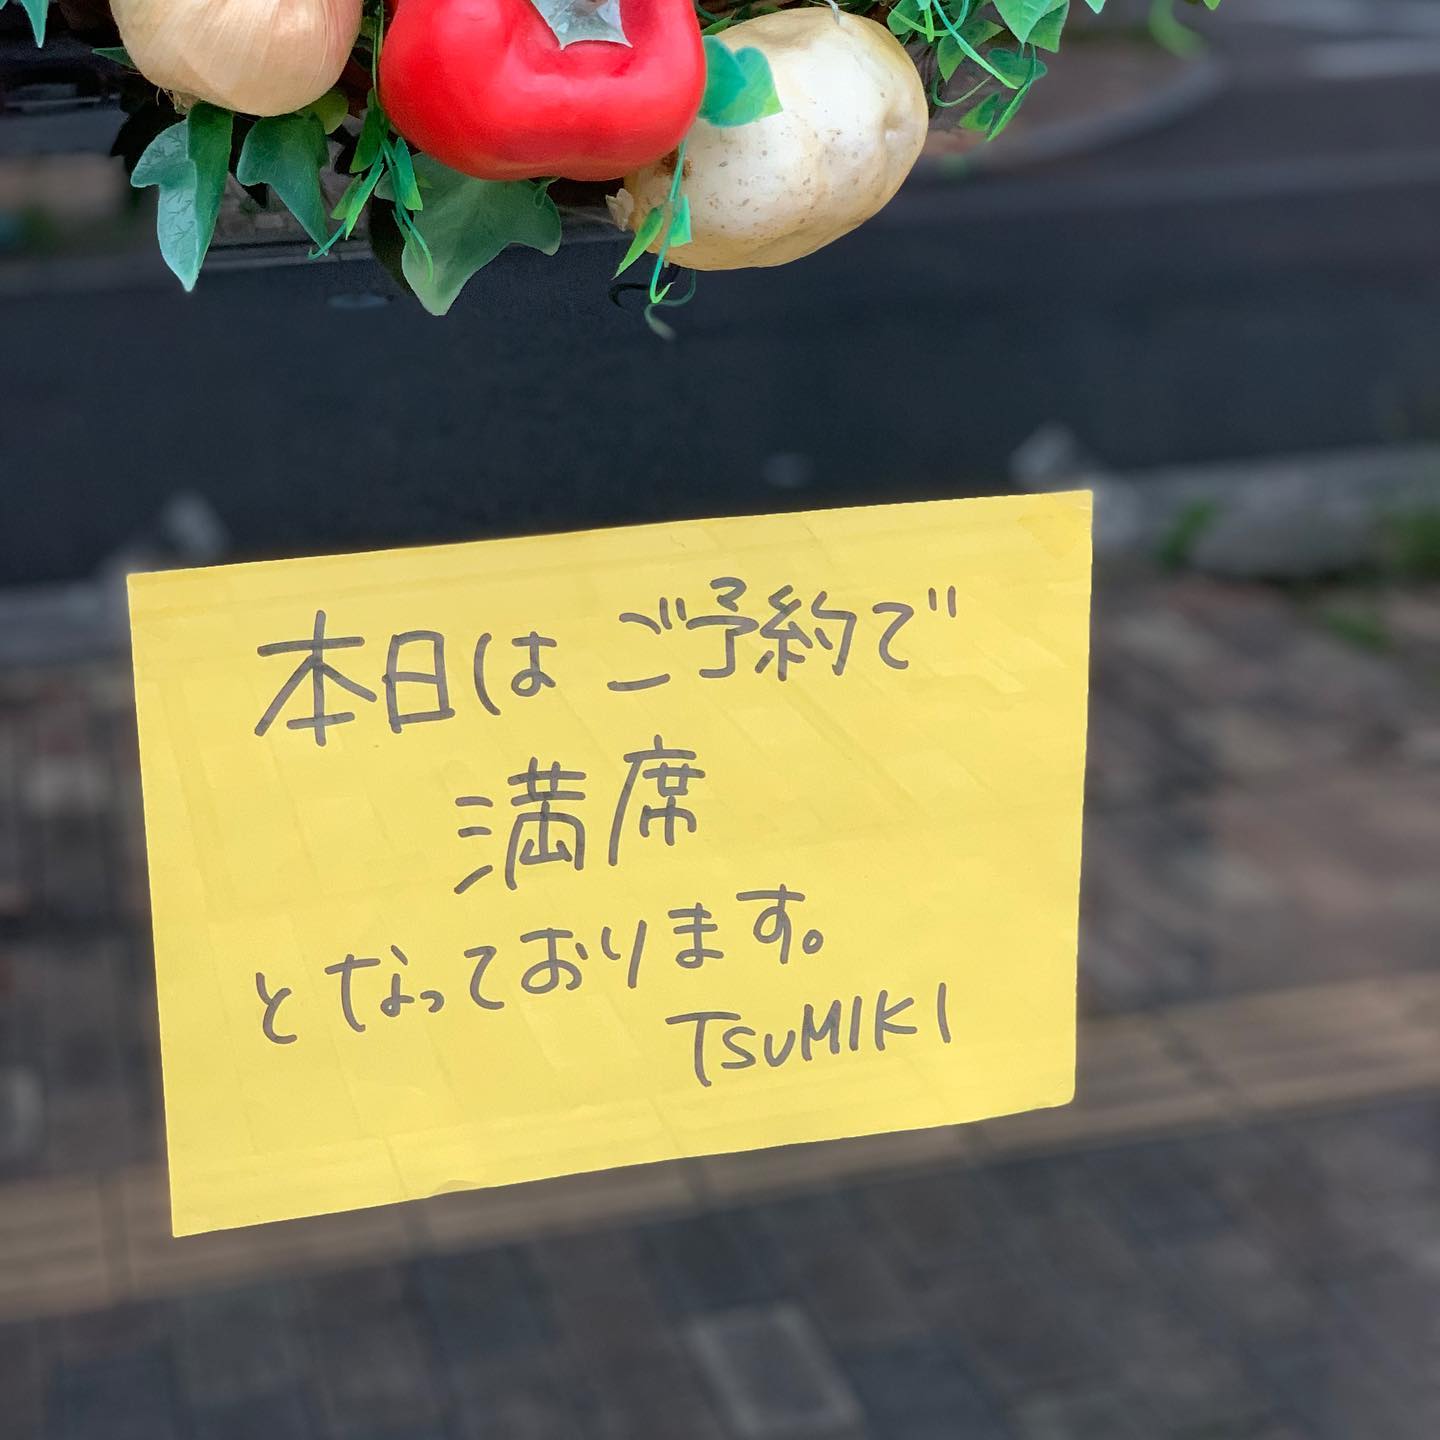 本日は ご予約で
満席
となっております。
TSUMIKI